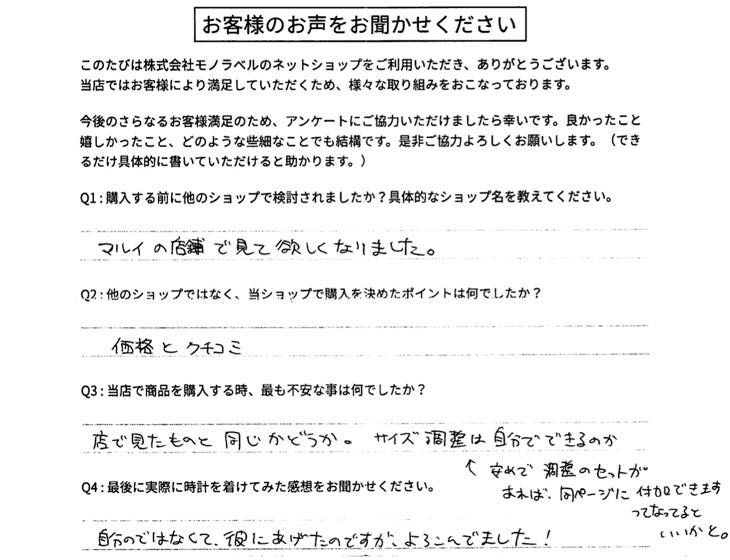 お客様のお声をお聞かせください
このたびは株式会社モノラベルのネットショップをご利用いただき、ありがとうございます。
当店ではお客様により満足していただくため、様々な取り組みをおこなっております。
今後のさらなるお客様満足のため、アンケートにご協力いただけましたら幸いです。良かったこと
嬉しかったこと、どのような些細なことでも結構です。是非ご協力よろしくお願いします。（でき
るだけ具体的に書いていただけると助かります。）
Q1:購入する前に他のショップで検討されましたか？具体的なショップ名を教えてください。
マルイの店舗で見て欲しくなりました。
Q2:他のショップではなく、当ショップで購入を決めたポイントは何でしたか？
価格とクチコミ
Q3:当店で商品を購入する時、最も不安な事は何でしたか？
店で見たものと同じかどうか。サイズ調整は自分でできるのか
↑安めで調整のセットが
あれば、同ページに付加できます
ってなってると
いいかと。
Q4:最後に実際に時計を着けてみた感想をお聞かせください。
自分のではなくて、彼にあげたのですが、よろこんでました！